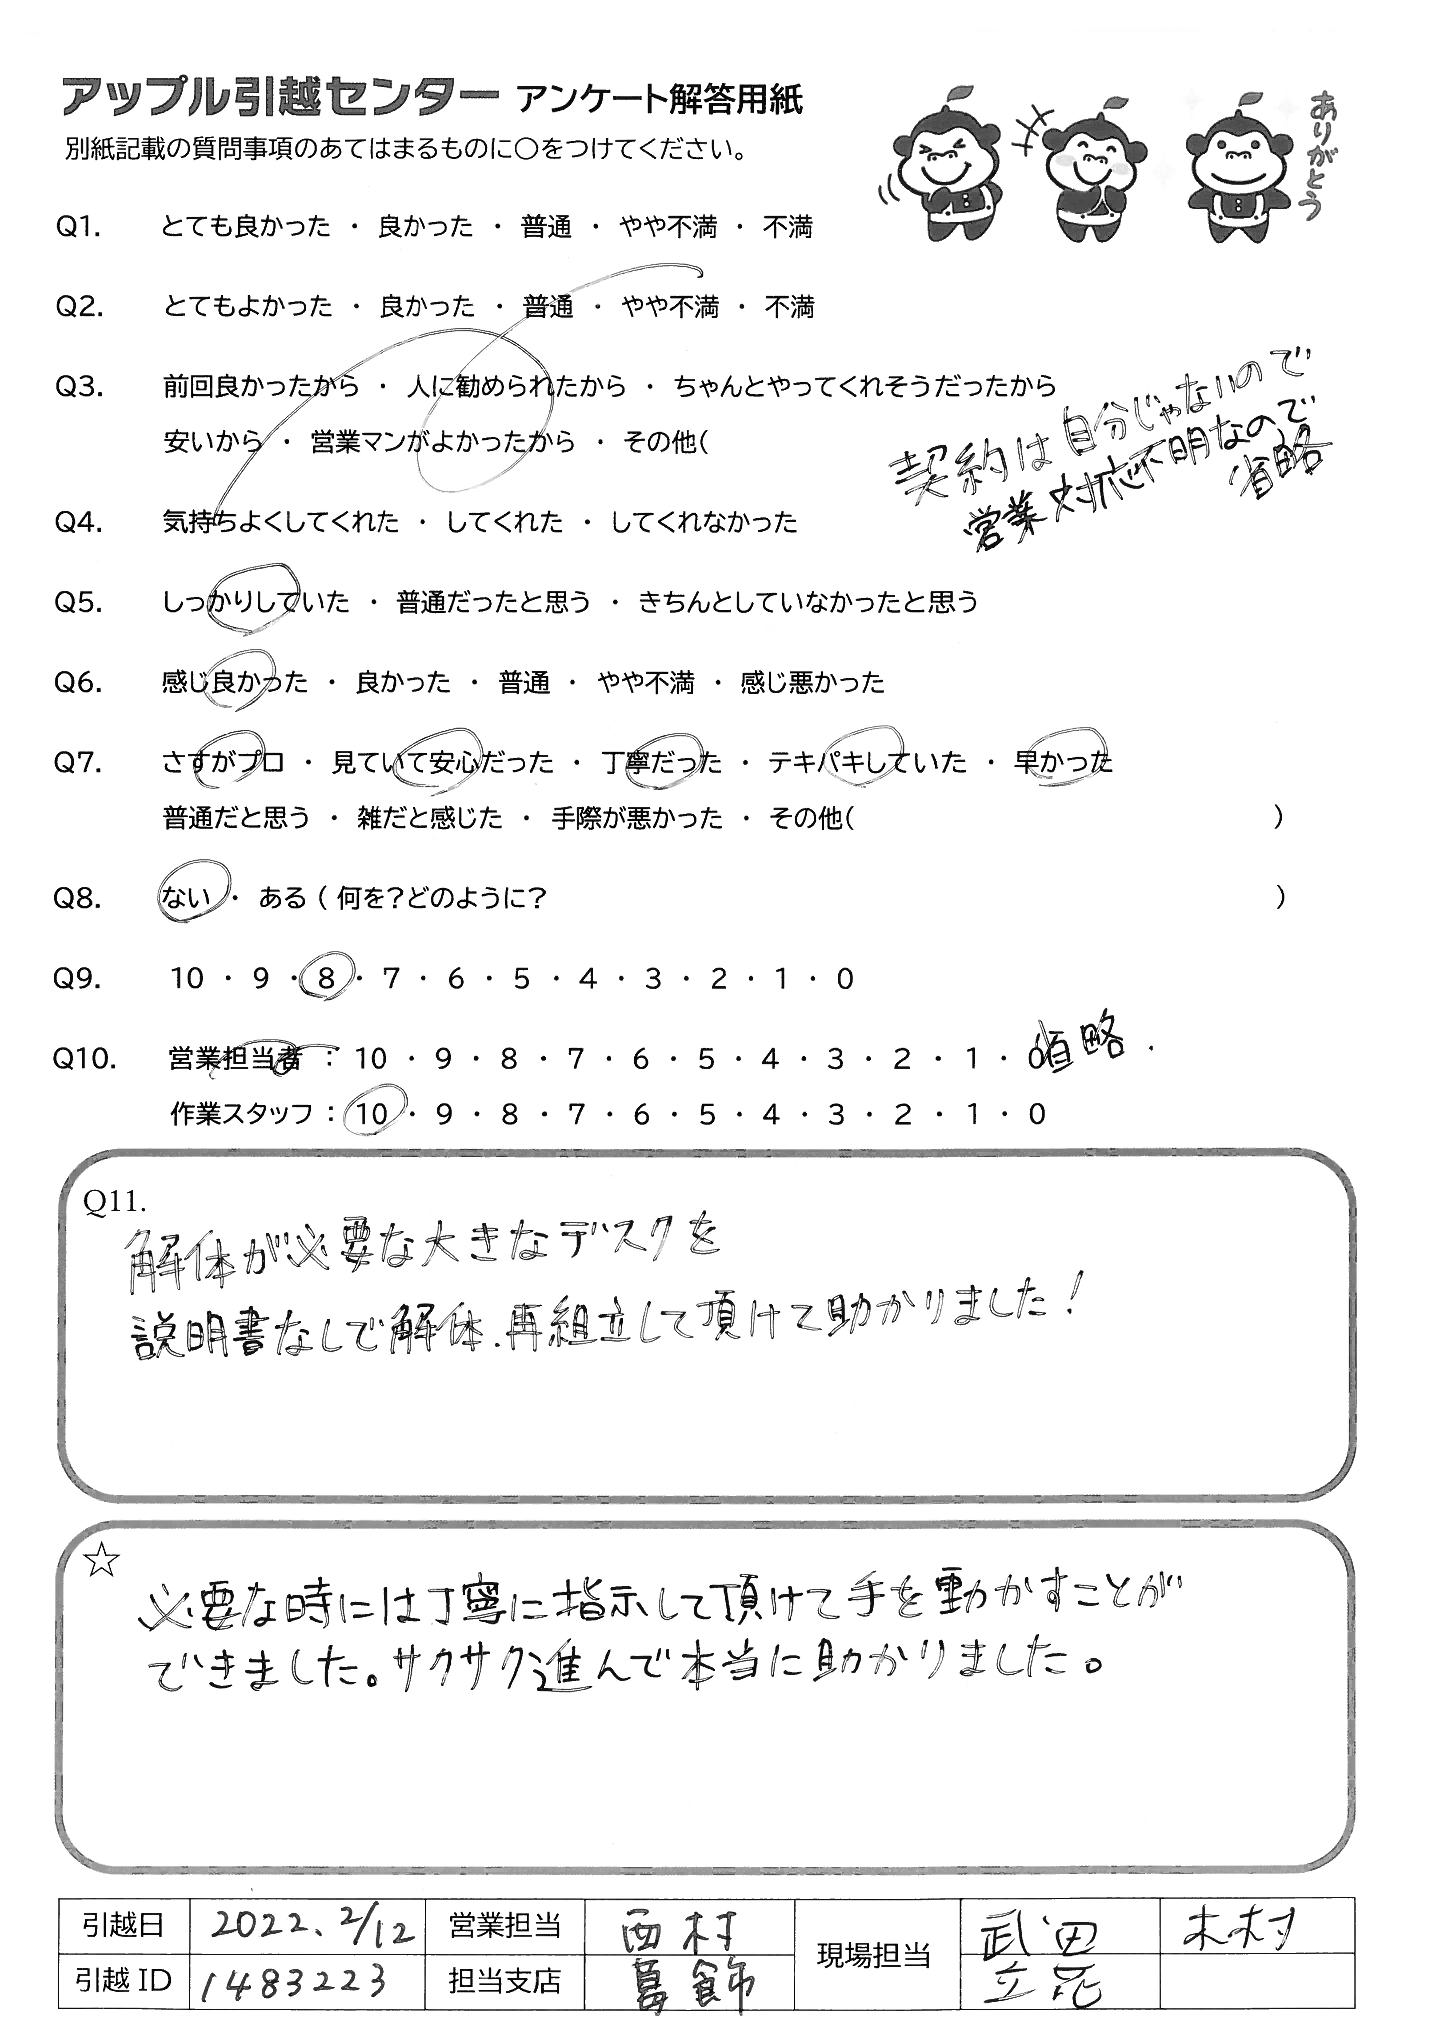 アップル引越センター アンケート解答用紙
別紙記載の質問事項のあてはまるものに○をつけてください。
ありがとう
Q1. とても良かった ・ 良かった ・ 普通 ・ やや不満 ・ 不満
Q2. とてもよかった ・ 良かった ・ 普通 ・ やや不満 ・ 不満
Q3. 前回良かったから ・ 人に勧められたから ・ ちゃんとやってくれそうだったから
安いから ・ 営業マンがよかったから ・ その他(
契約は自分じゃないので
営業対応不明なので
省略
Q4. 気持ちよくしてくれた ・ してくれた ・ してくれなかった
Q5. しっかりしていた ・ 普通だったと思う ・ きちんとしていなかったと思う
Q6. 感じ良かった ・ 良かった ・ 普通 ・ やや不満 ・ 感じ悪かった
Q7. さすがプロ ・ 見ていて安心だった ・ 丁寧だった ・ テキパキしていた ・ 早かった
普通だと思う ・ 雑だと感じた ・ 手際が悪かった ・ その他( )
Q8. ない ・ ある ( 何を?どのように? )
Q9. 10 ・ 9 ・ 8 ・ 7 ・ 6 ・ 5 ・ 4 ・ 3 ・ 2 ・ 1 ・ 0
Q10. 営業担当者 : 10 ・ 9 ・ 8 ・ 7 ・ 6 ・ 5 ・ 4 ・ 3 ・ 2 ・ 1 ・ 0 省略.
作業スタッフ : 10 ・ 9 ・ 8 ・ 7 ・ 6 ・ 5 ・ 4 ・ 3 ・ 2 ・ 1 ・ 0
Q11.
解体が必要な大きなデスクを
説明書なしで解体、再組立して頂けて助かりました!
☆
必要な時には丁寧に指示して頂けて手を動かすことが
できました。サクサク進んで本当に助かりました。
引越日 2022.2/12 営業担当 西村 現場担当 武田 木村
引越ID 1483223 担当支店 葛飾 立花